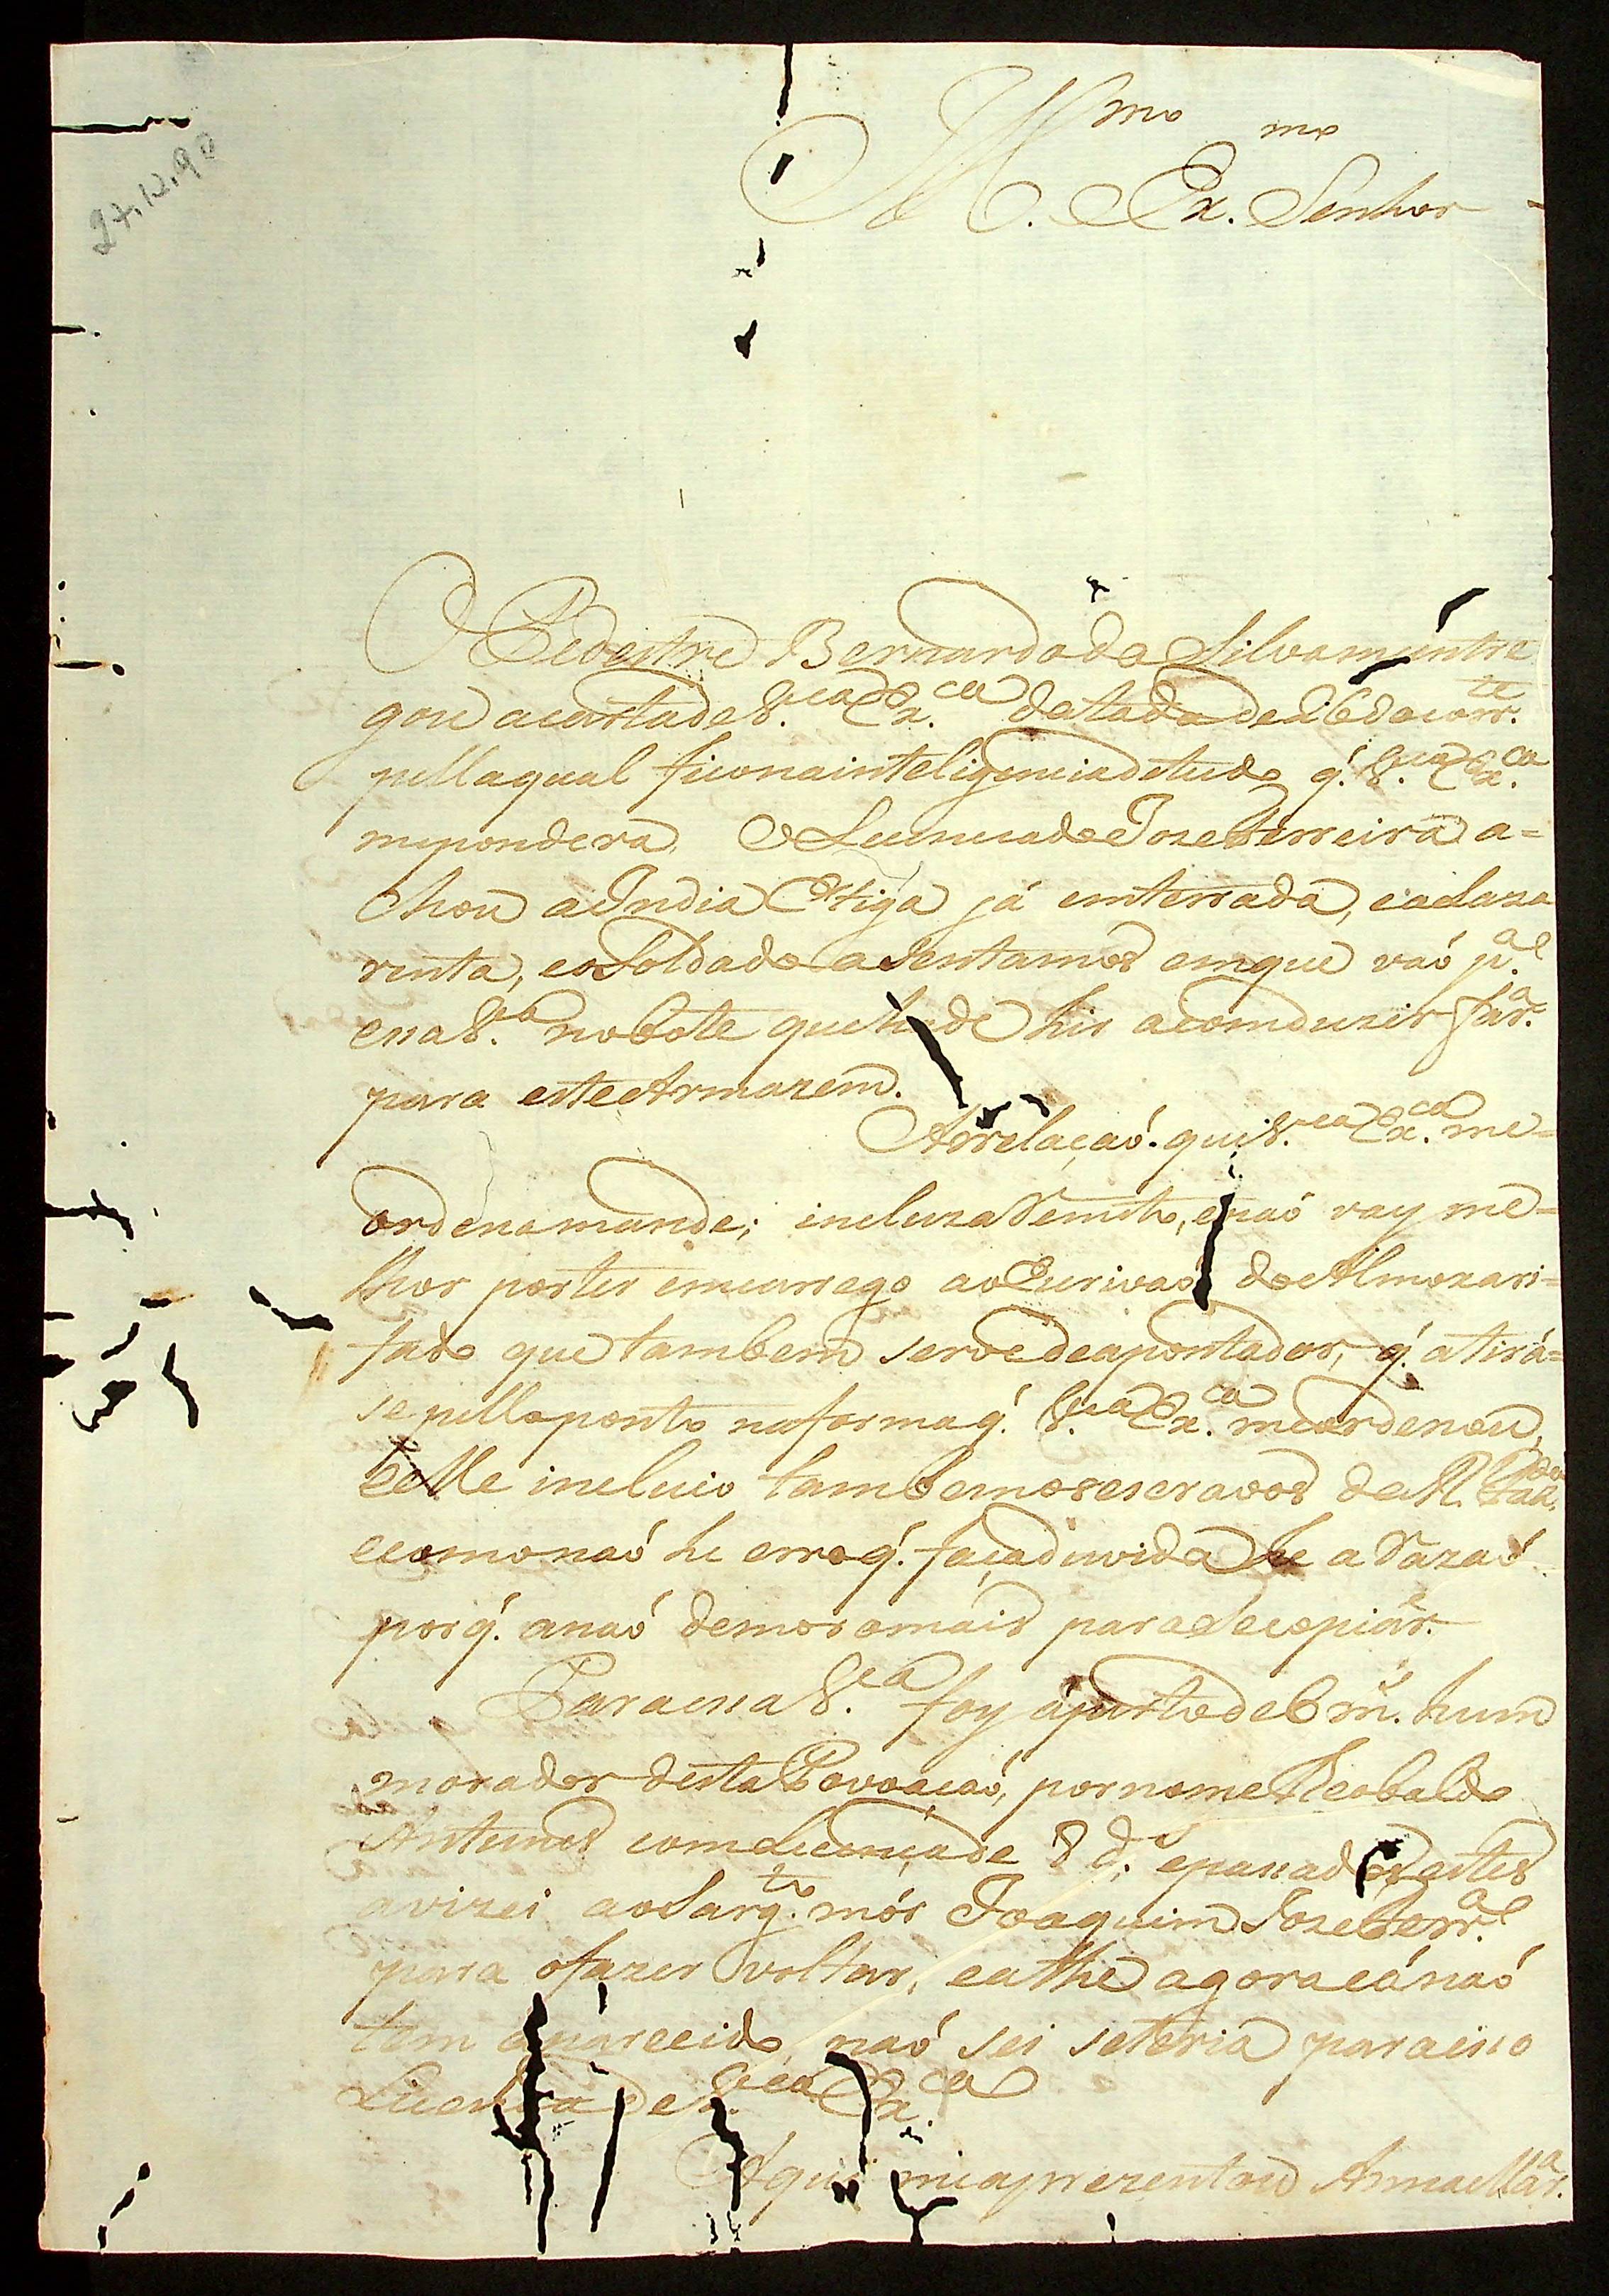 27,12,90
Ill.mo Ex.mo Senhor
O Pedestre Bernardo da Silva mentre
gou acarta de V.ca Ex.ca datada de 26 do corr.te
pella qual fico na inteligencia detudo q'. V.ca Ex.ca
me pondera, O Lecenceado Joze Ferreira a=
chou a India Etiga já emterrada, ea Laza
renta, eo Soldado asentamos em que vaó p.a
essa V.a no bote que hade hir a comduzir far.a
para este Armazem.
Arrelaçaó. que V.ca Ex.ca me=
ordena mande; incluza Remeto, enaó vay me=
lhor por ter emcarrego ao Escrivaó do Almoxari=
fado que tambem serve de apontador, q'. atirá=
se pello ponto na forma q'. V.ca Ex.ca me ordenou,
e elle incluio tambem os escravos da R. Faz.da
e como naó he erro q'. faça duvida he a Razaó
por q'. a naó demoro mais para se copiár.
Para essa V.a foy áperto de 6 m. hum
morador desta Povoacaó, por nome Teobaldo
Antunes com Lecença de 8 d. e passados estes
avizei ao Sarg.to mór Joaquim Joze Ferr.a
para o fazer voltar, e athe agora cá naó
tem áparecido, naó sei se teria para isso
Licença de V.ca Ex.ca
Aqui me aprezentou Anna Mar.a